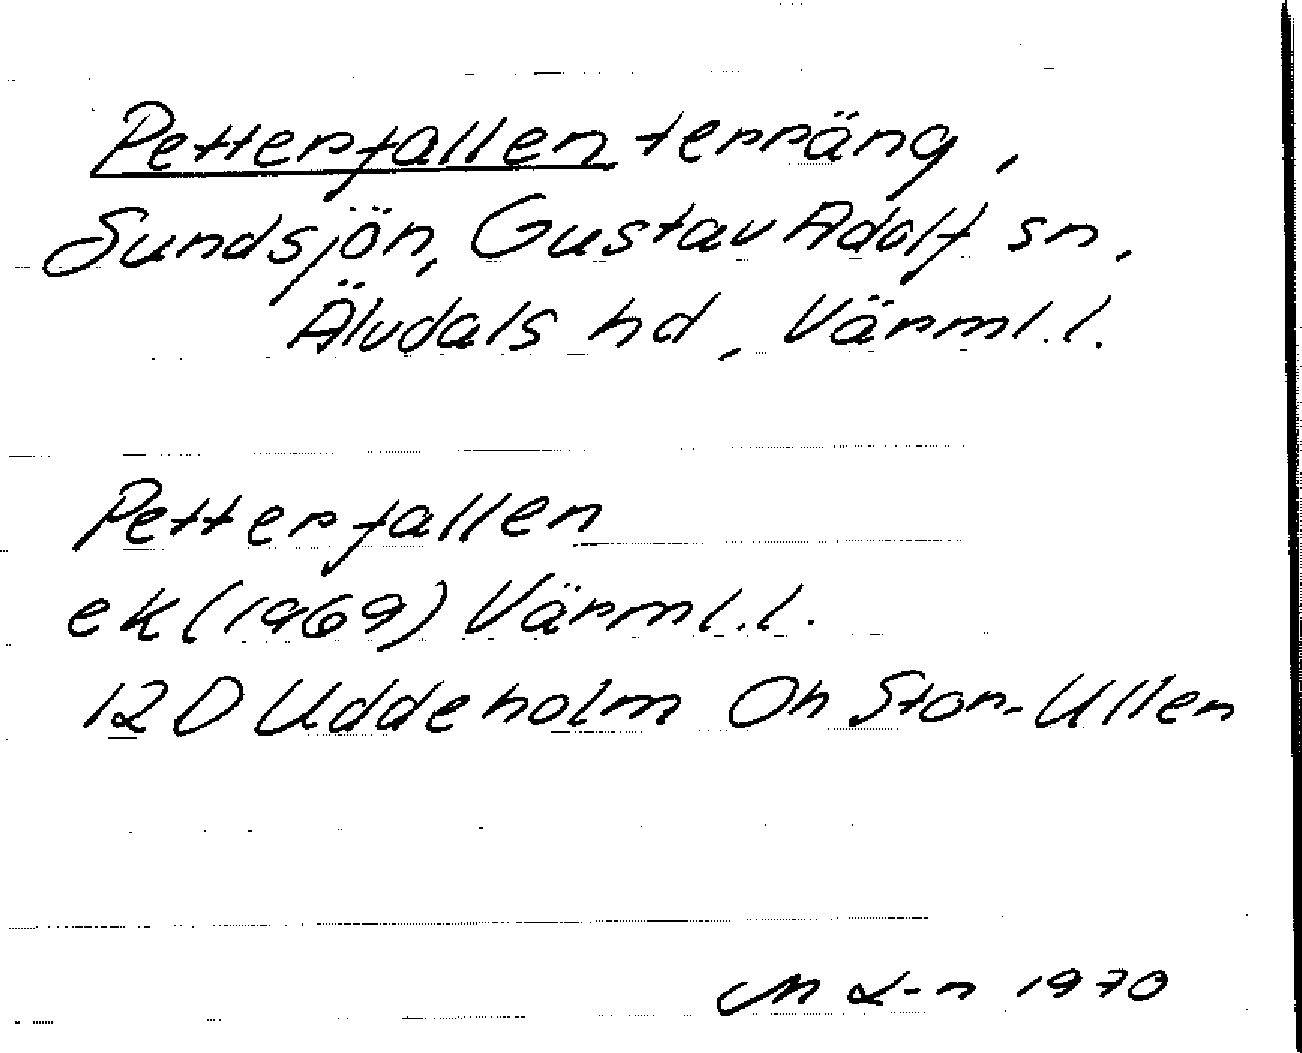 Petterfallen terräng,
Sundsjön, Gustav Adolf sn,
Älvdals hd, Värml.l.
Petterfallen
ek (1969) Värml.l.
12 D Uddeholm Oh Stor-Ullen
M L-n 1970